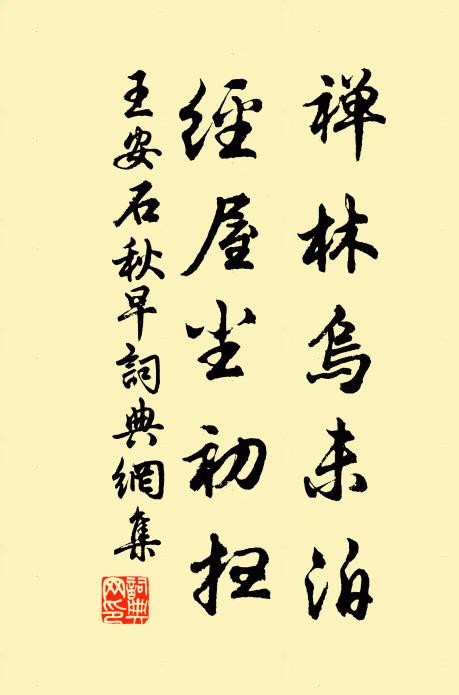 禅林烏未泊
經屋尘初扫
王安石秋早詞典網集
詞典
网印